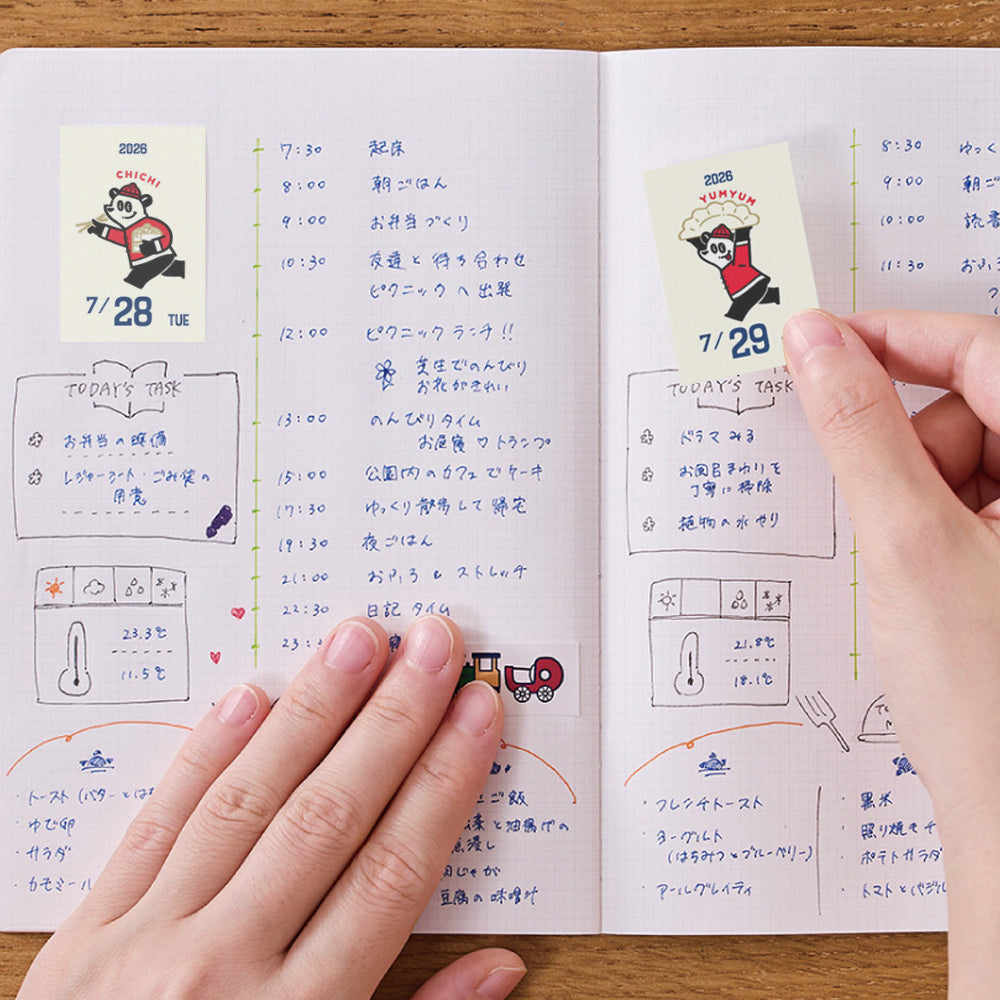 2026
CHICHI
7/28 TUE
TODAY'S TASK
お弁当の準備
レジャーシート・ごみ袋の
用意
23.3℃
11.5℃
7:30 起床
8:00 朝ごはん
9:00 お弁当づくり
10:30 友達と待ち合わせ
ピクニックへ出発
12:00 ピクニックランチ!!
芝生でのんびり
お花がきれい
13:00 のんびりタイム
お昼寝♡トランプ
15:00 公園内のカフェでケーキ
17:30 ゆっくり散歩して帰宅
19:30 夜ごはん
21:00 おふろ&ストレッチ
22:30 日記タイム
23:
・トースト(バターとはち
・ゆで卵
・サラダ
・カモミール
ご飯
と油揚げの
煮浸し
肉じゃが
豆腐の味噌汁
2026
YUMYUM
7/29
TODAY'S TASK
ドラマみる
お風呂まわりを
丁寧に掃除
植物の水やり
21.8℃
18.1℃
8:30 ゆっく
9:00 朝ご
10:00 読書
11:30 おふろ
・フレンチトースト
・ヨーグルト
(はちみつとブルーベリー)
・アールグレイティ
・黒米
・照り焼きチ
・ポテトサラダ
・トマトとバジル